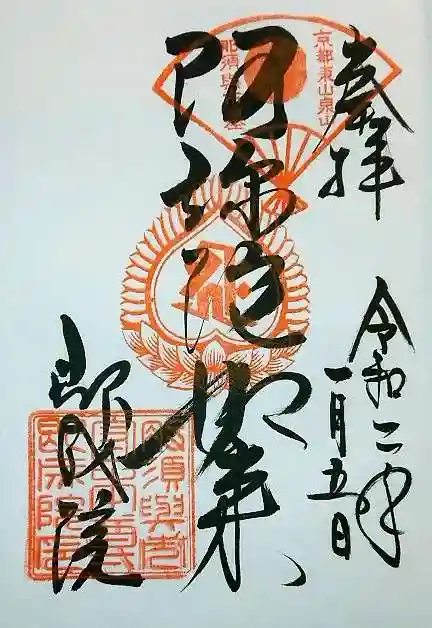 奉拝
令和二年
一月五日
京都東山泉山
那須與市墓
阿弥陀如来
即成院